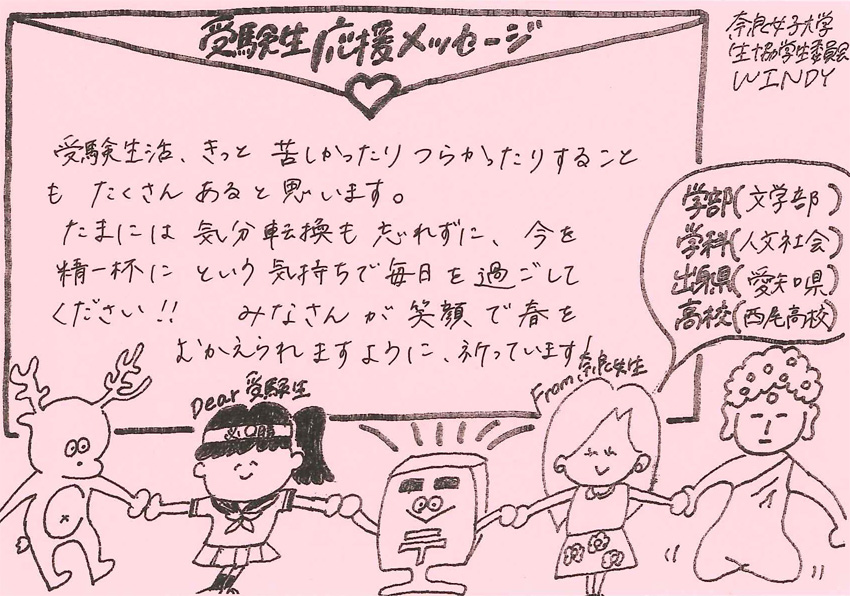 受験生応援メッセージ
奈良女子大学
生協学生委員会
WINDY
受験生活、きっと 苦しかったり つらかったりすること
も たくさん あると思います。
たまには 気分転換も 忘れずに、今を
精一杯に という気持ちで毎日を過ごして
ください!! みなさんが笑顔で春を
むかえられますように、祈っています!
学部(文学部)
学科(人文社会)
出身県(愛知県)
高校(西尾高校)
Dear 受験生
From 奈良先生
必勝
〒